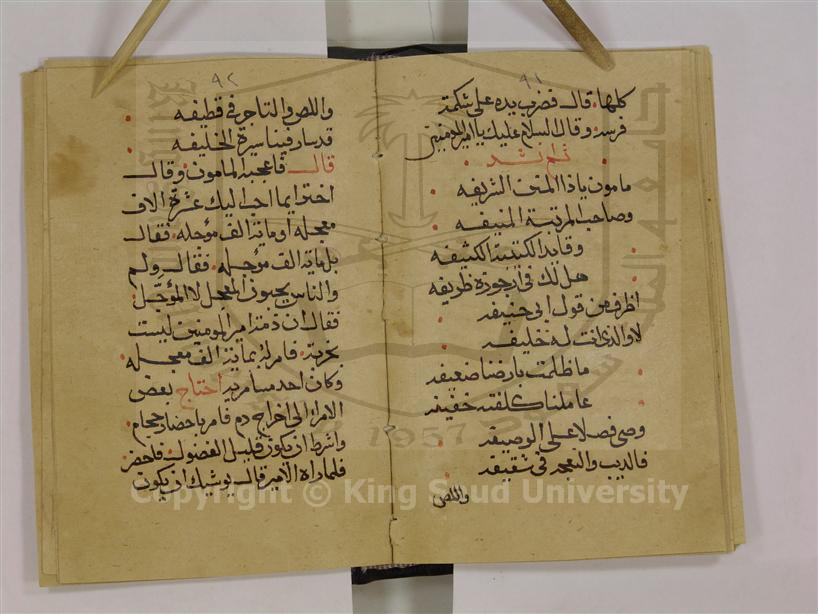 ٩١
كلها. قال فضرب يده على شكمة
فرسه وقال السلام عليك يا امير المومنين
ثم نشد
مامون ياذا المنن الشريفه
وصاحب المرتبة المنيفه
وقايد الكتيبة الكثيفه
هل لك في ارجوزة ظريفه
اظرف من قول ابي حنيفه
لا والذي انت له خليفه
ما ظلمت بارضنا ضعيفه
عاملنا كلفته خفيفه
وصى فصلا على الوصيفه
فالديب والنعجه في سقيفه
واللص
٩٢
واللص والتاجر في قطيفه
قد سار فينا سيرة الخليفه
قال فاعجب المامون وقال
اختر ايما احب اليك عشرة الاف
معجله او ماية الف مؤجله. فقال
بل ماية الف مؤجله. فقال ولم
والناس يحبون المعجل لا المؤجل.
فقال ان ذمة امير المومنين ليست
بخربة. فامر له بماية الف معجله
وكان احد مسامريه احتاج بعض
الامراء الى اخراج دم فامر باحضار حجام.
واشرط ان يكون قليل الفضول فاحضر
فلما راه الامير قال يوشيك ان يكون
Copyright © King Saud University
1957